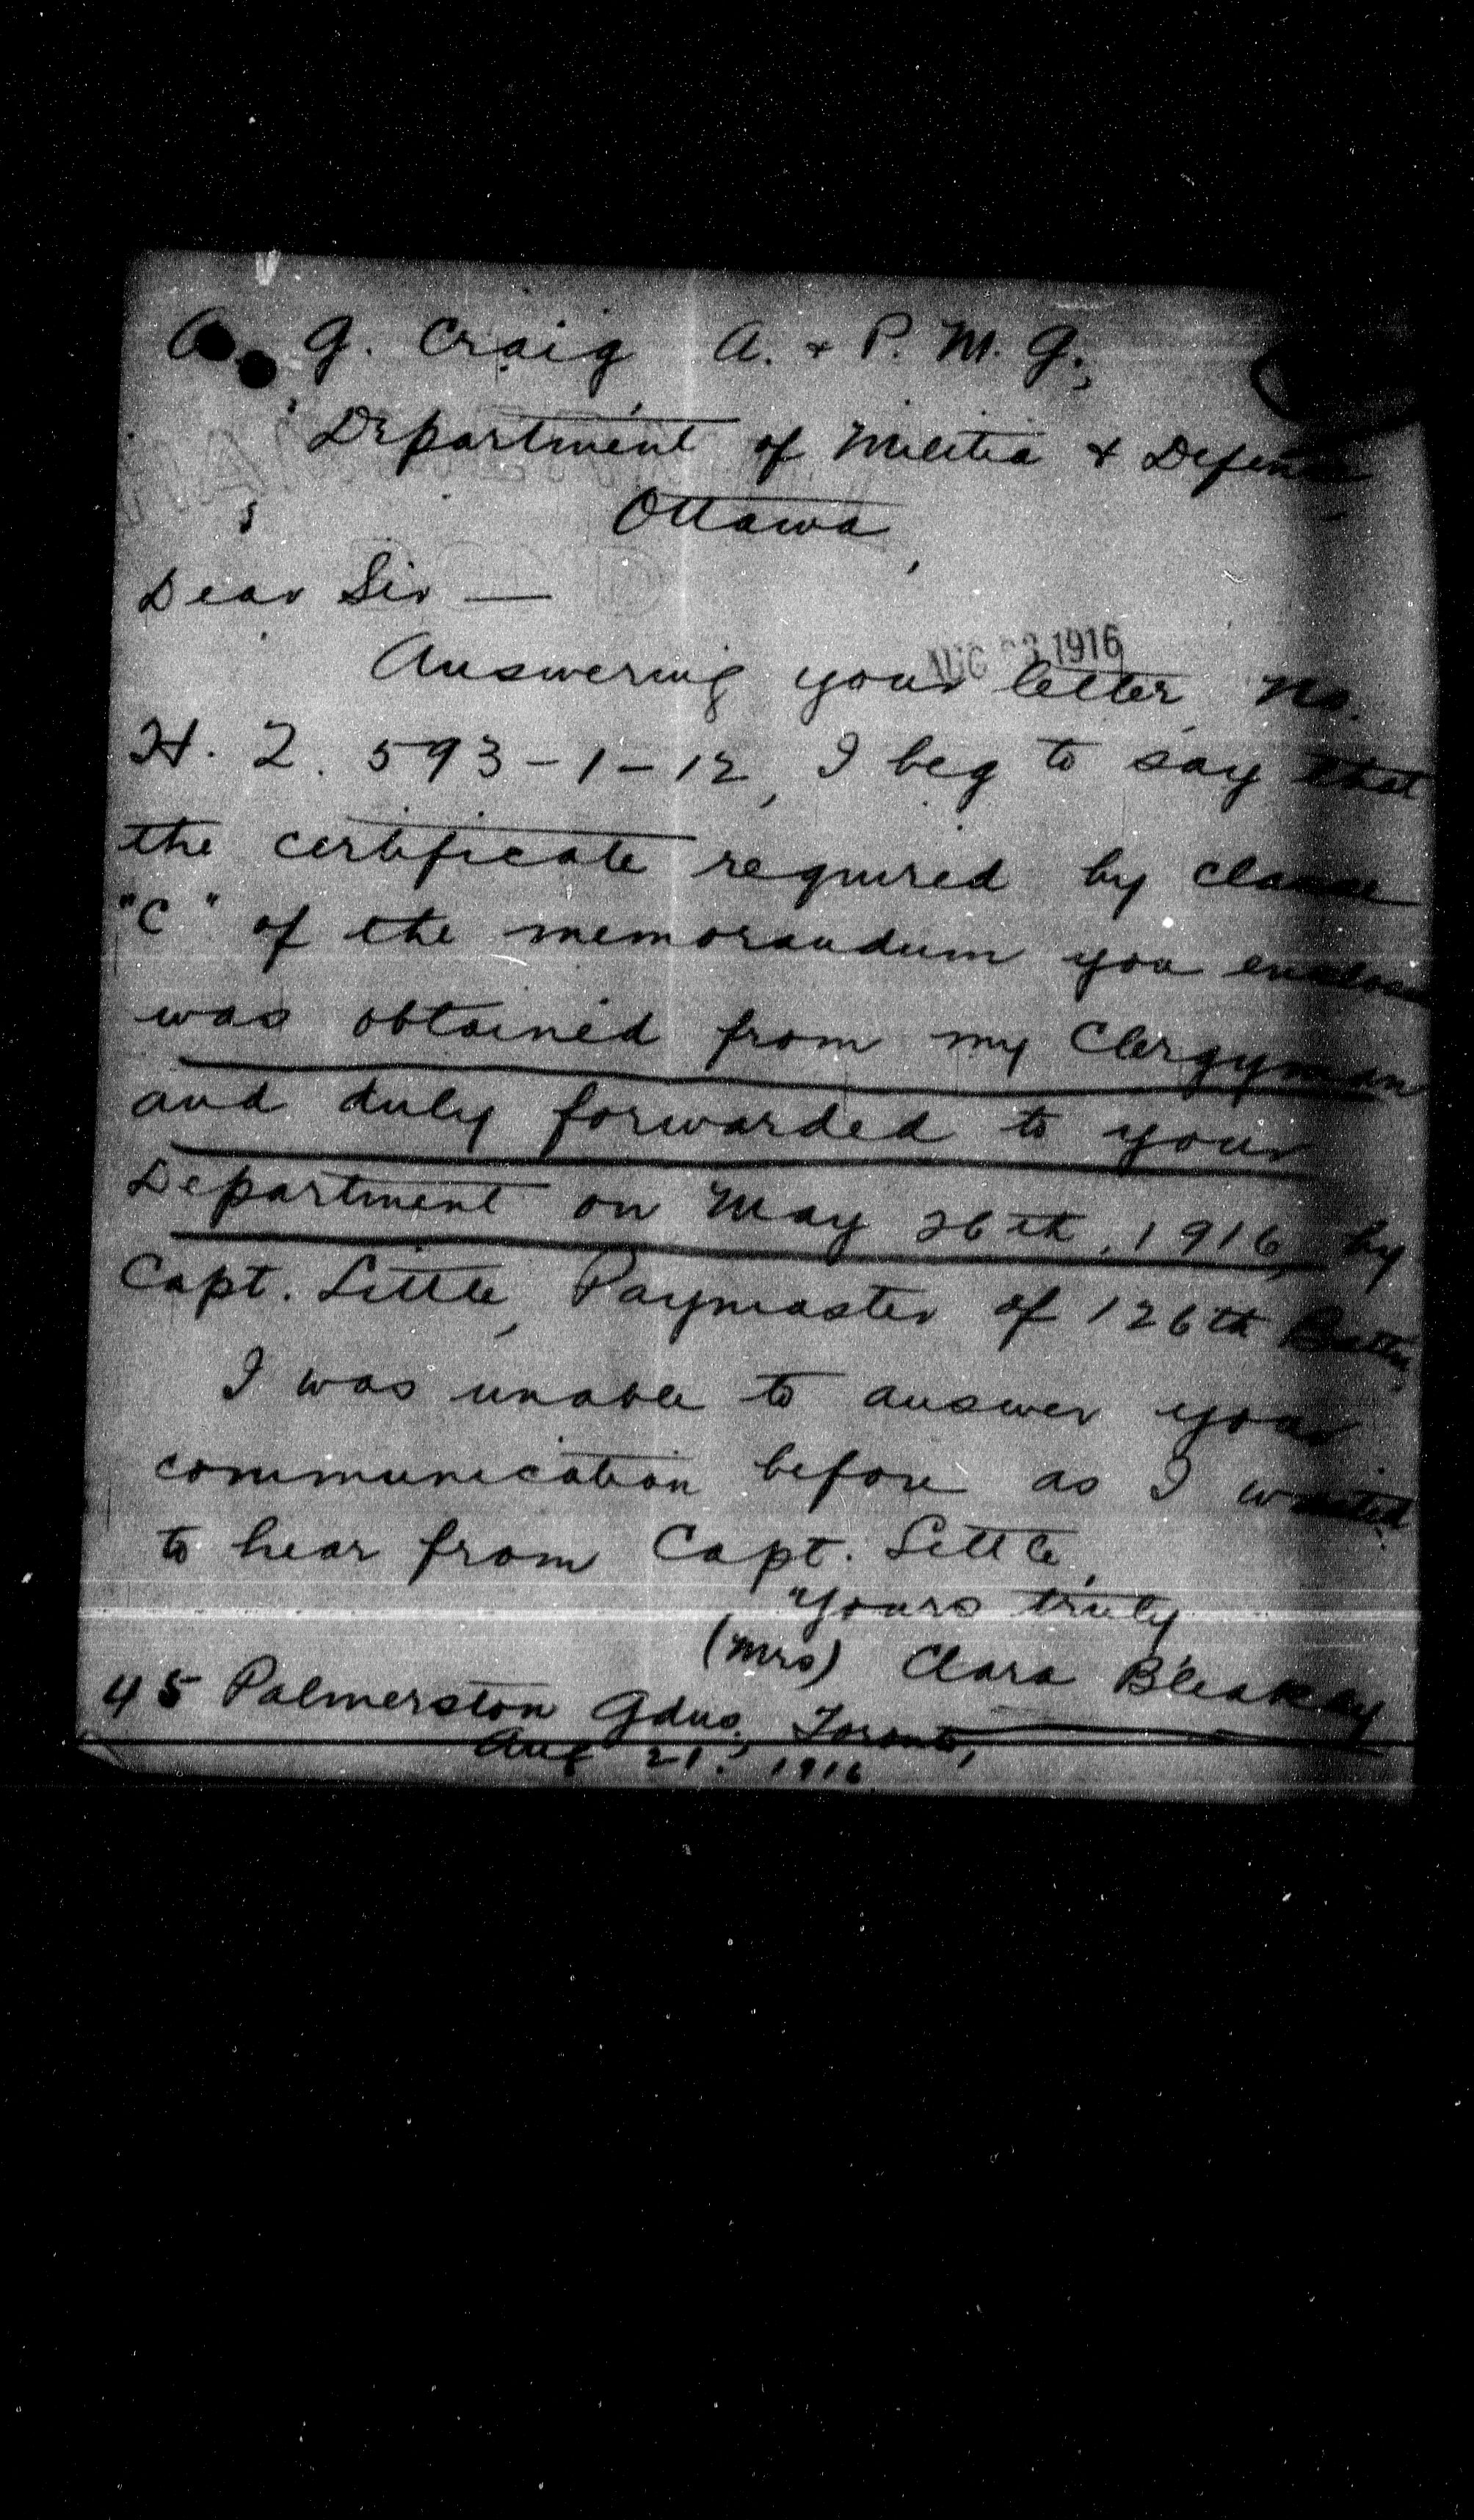 A. G. Craig, A. & P. M. G.,
Department of Militia & Defence,
Ottawa,
Dear Sir —
AUG 23 1916
Answering your letter, No.
H. Q. 593-1-12, I beg to say that
the certificate required by clause
"C" of the memorandum you enclose
was obtained from my Clergyman
and duly forwarded to your
Department on May 26th, 1916, by
Capt. Little, Paymaster of 126th Batt.,
I was unable to answer your
communication before as I waited
to hear from Capt. Little,
Yours truly
(Mrs) Clara Bleakley
45 Palmerston Gdns., Toronto,
Aug 21. 1916